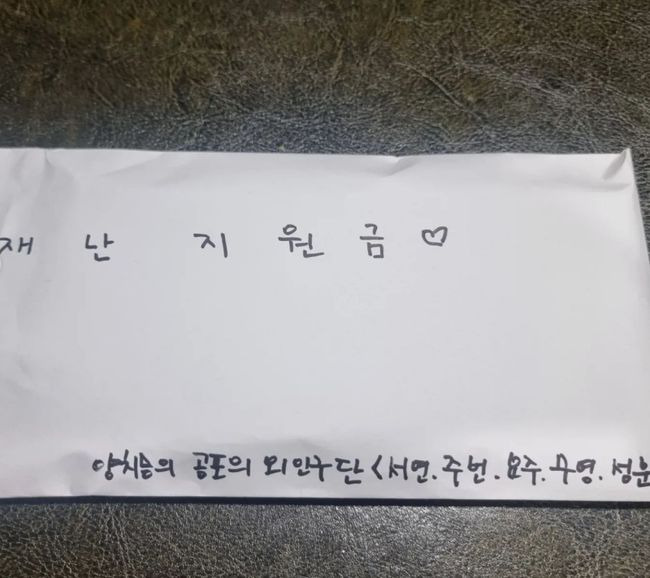 재 난 지 원 금 ♡
양치승의 공포의 외인구단 <서연.주번.요주.수영.성훈